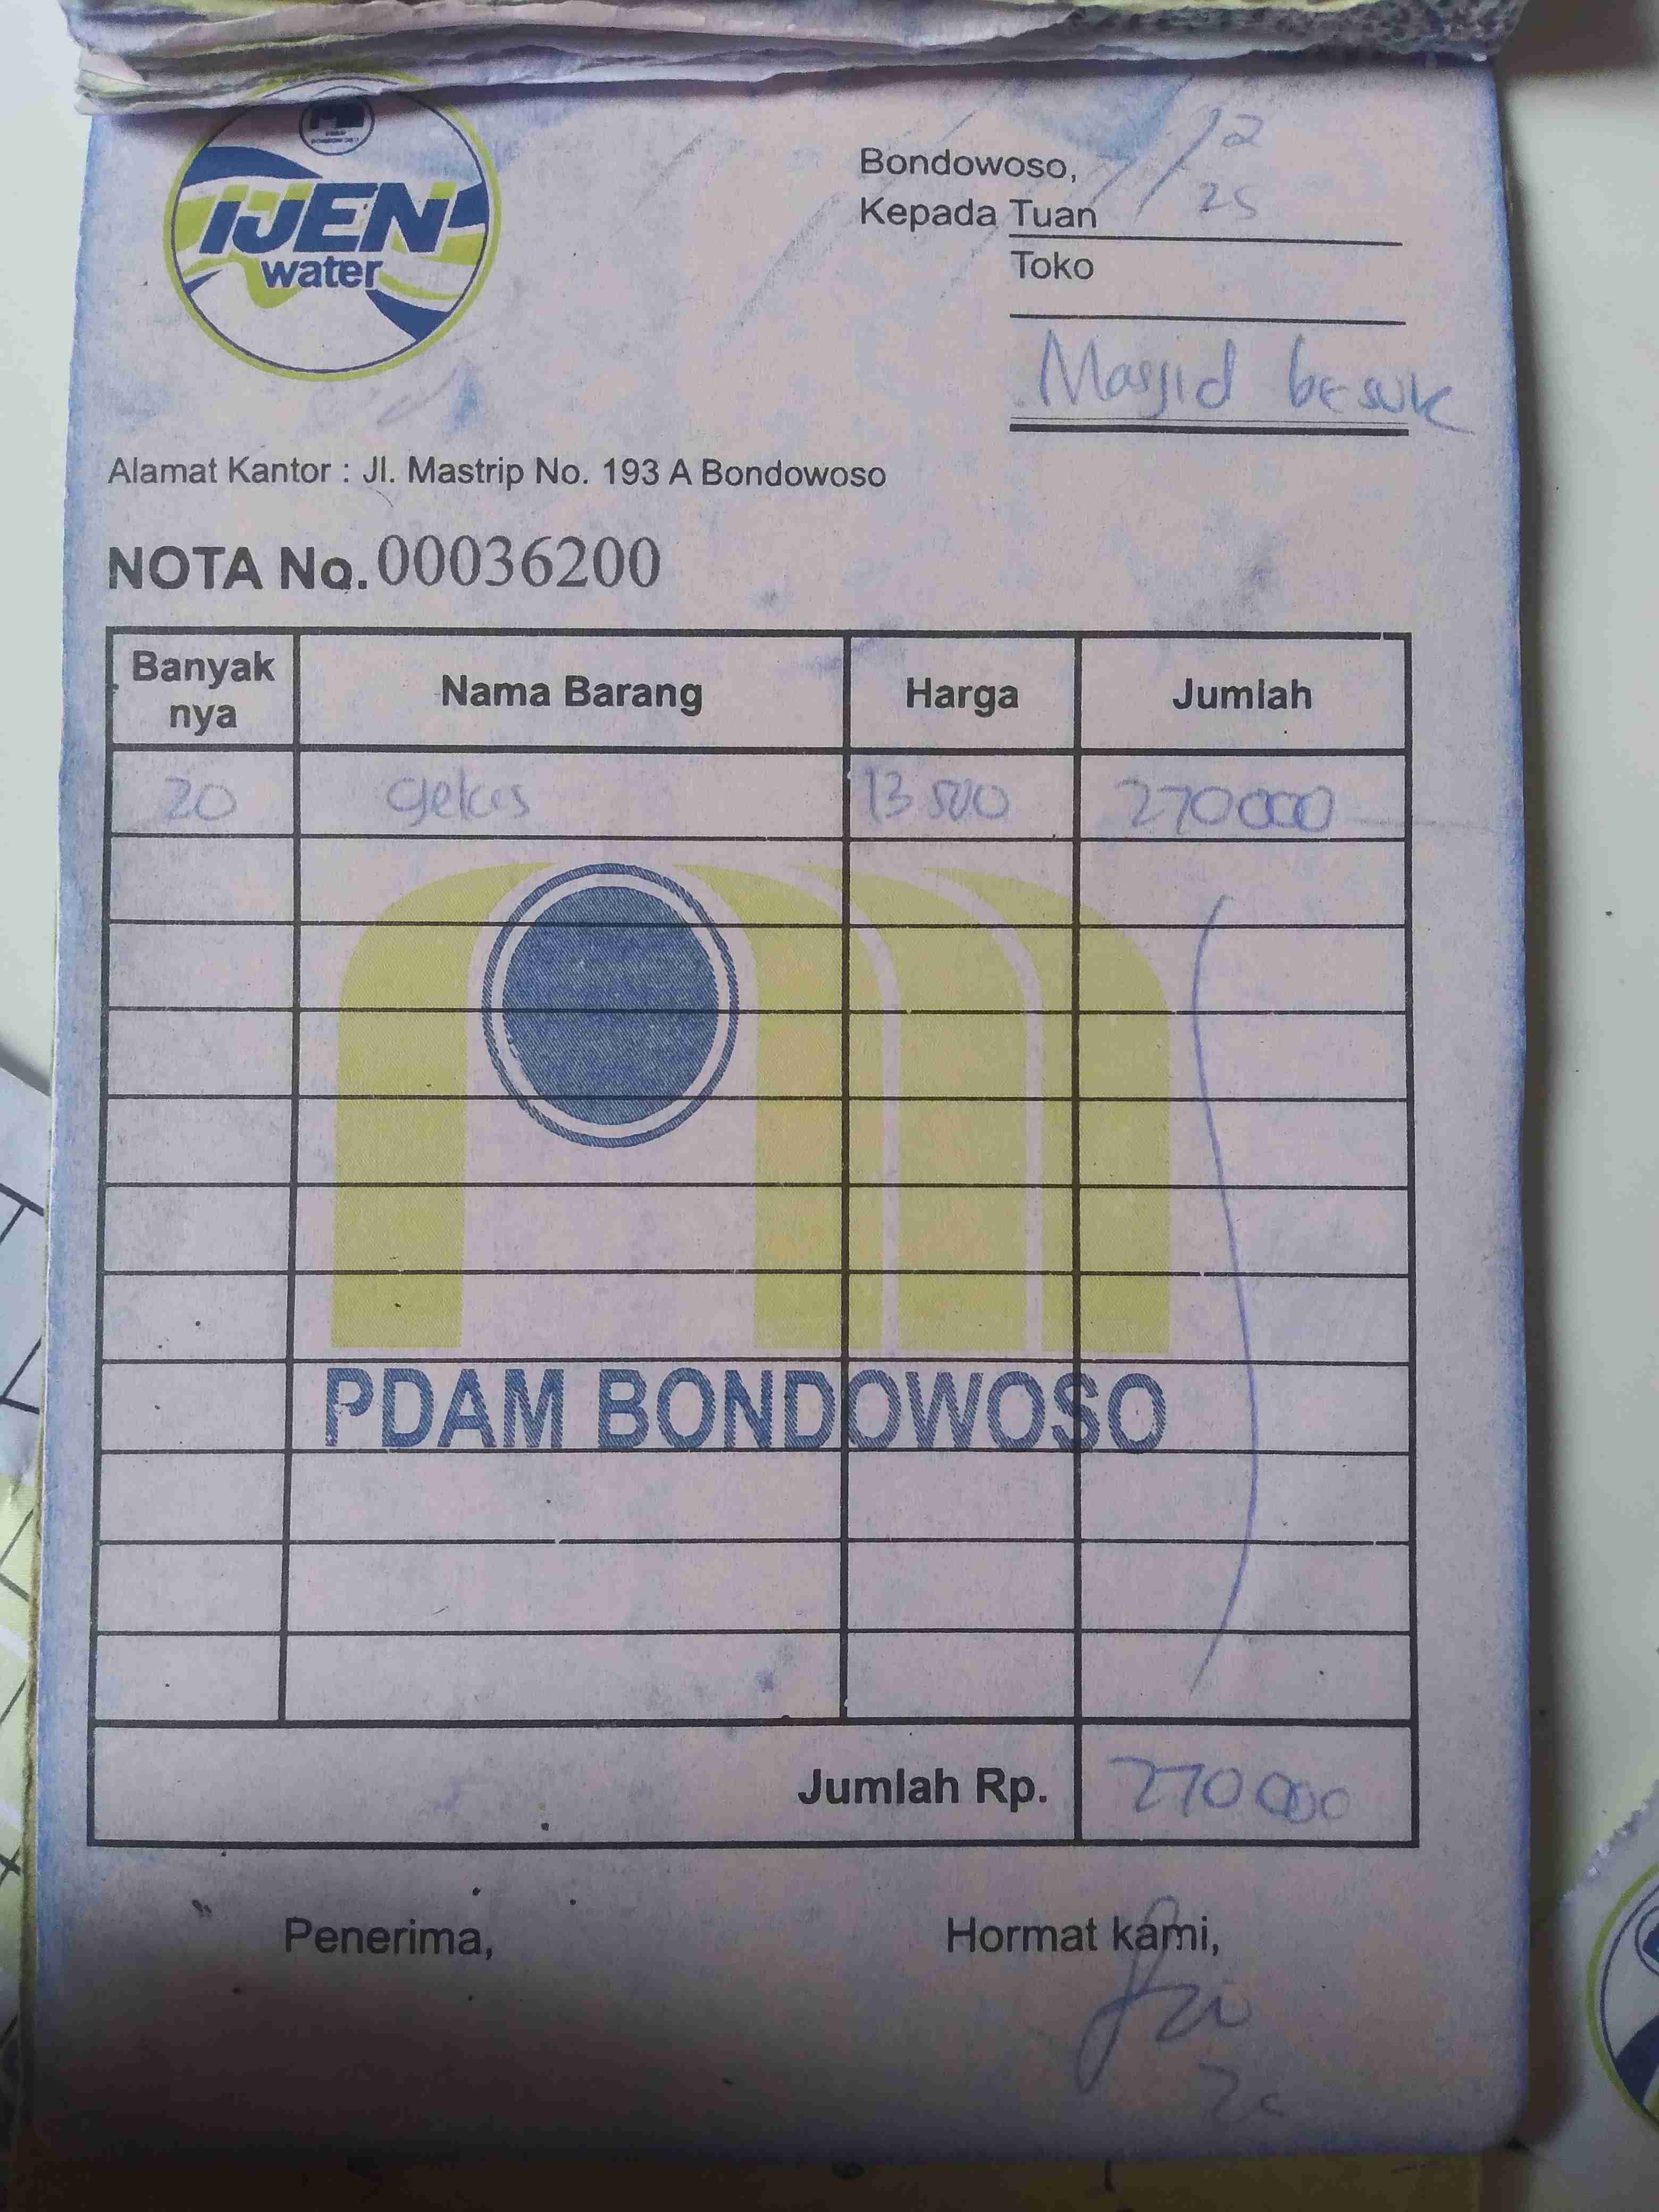 IJEN
water
Bondowoso, 7/12
25
Kepada Tuan
Toko
Masjid besuk
Alamat Kantor : Jl. Mastrip No. 193 A Bondowoso
NOTA No. 00036200
Banyak nya Nama Barang Harga Jumlah
20 gelas 13 500 270 000
PDAM BONDOWOSO
Jumlah Rp. 270 000
Penerima, Hormat kami,